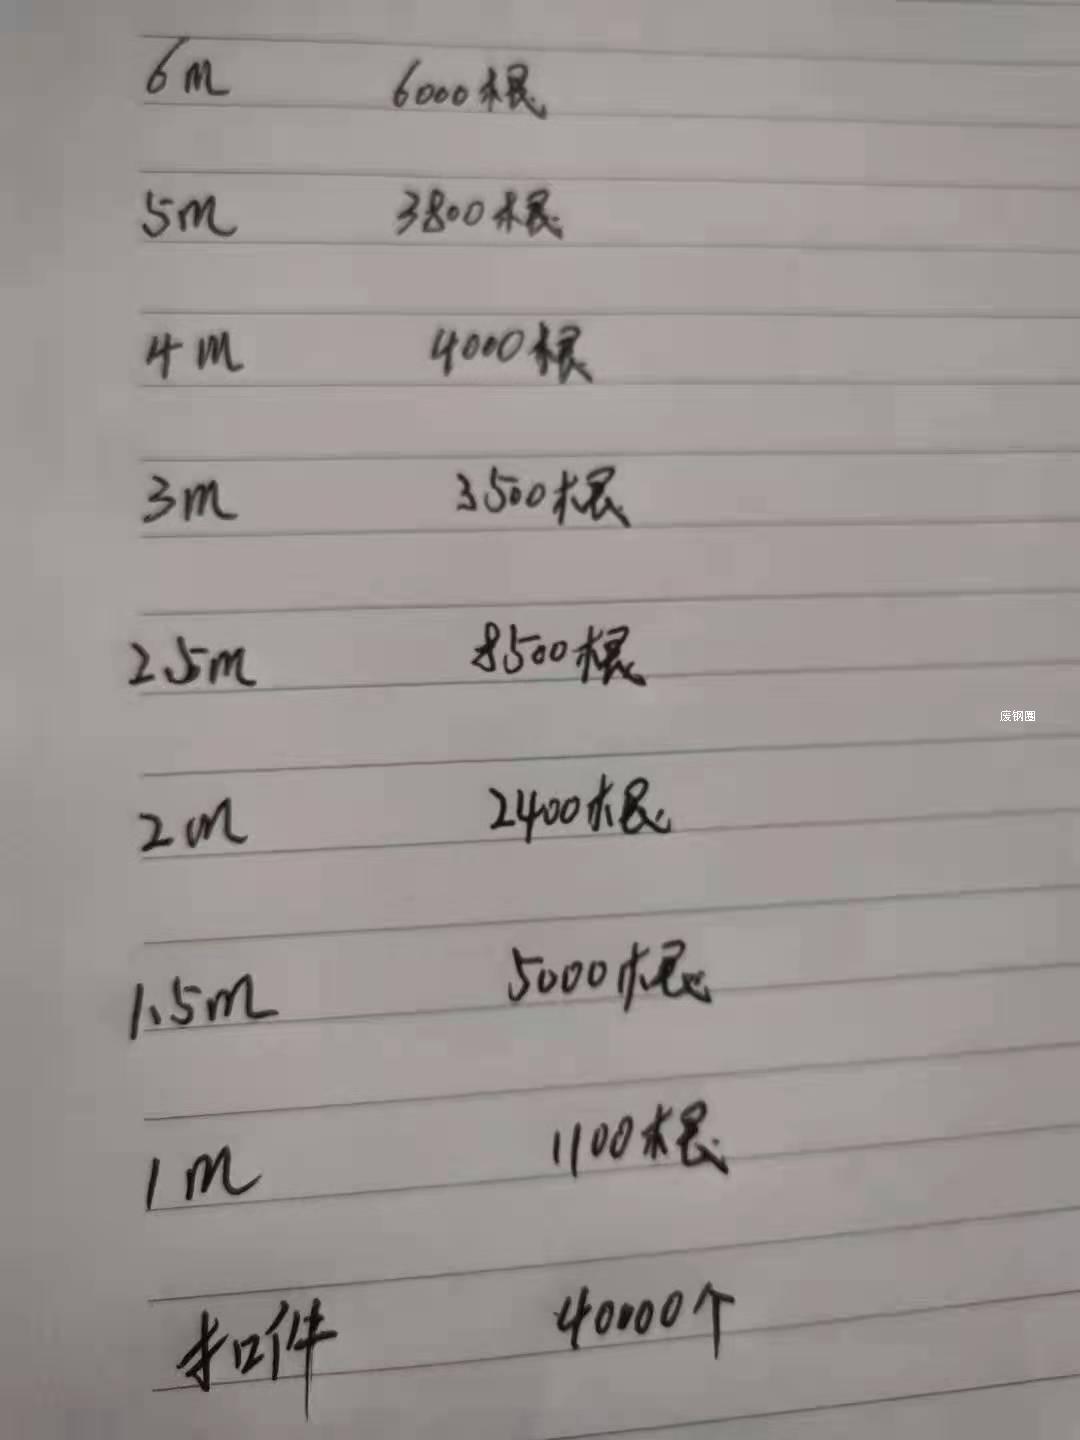 6m 6000根
5m 3800根
4m 4000根
3m 3500根
2.5m 8500根
废钢圈
2m 2400根
1.5m 5000根
1m 1100根
扣件 40000个